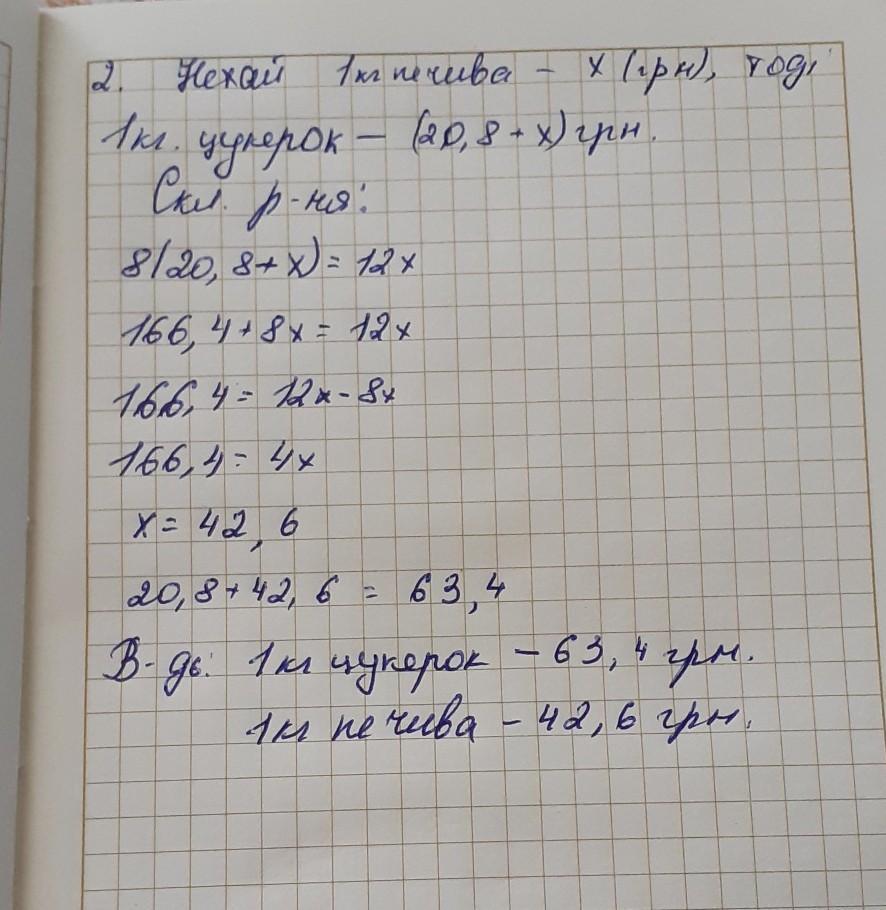 2. Нехай 1кг печива - х (грн), тоді
1кг. цукерок - (20,8 + х) грн.
Скл. р-ня:
8(20,8+х) = 12х
166,4 + 8х = 12х
166,4 = 12х - 8х
166,4 = 4х
х = 42,6
20,8 + 42,6 = 63,4
В-дь: 1кг цукерок - 63,4 грн.
1кг печива - 42,6 грн.